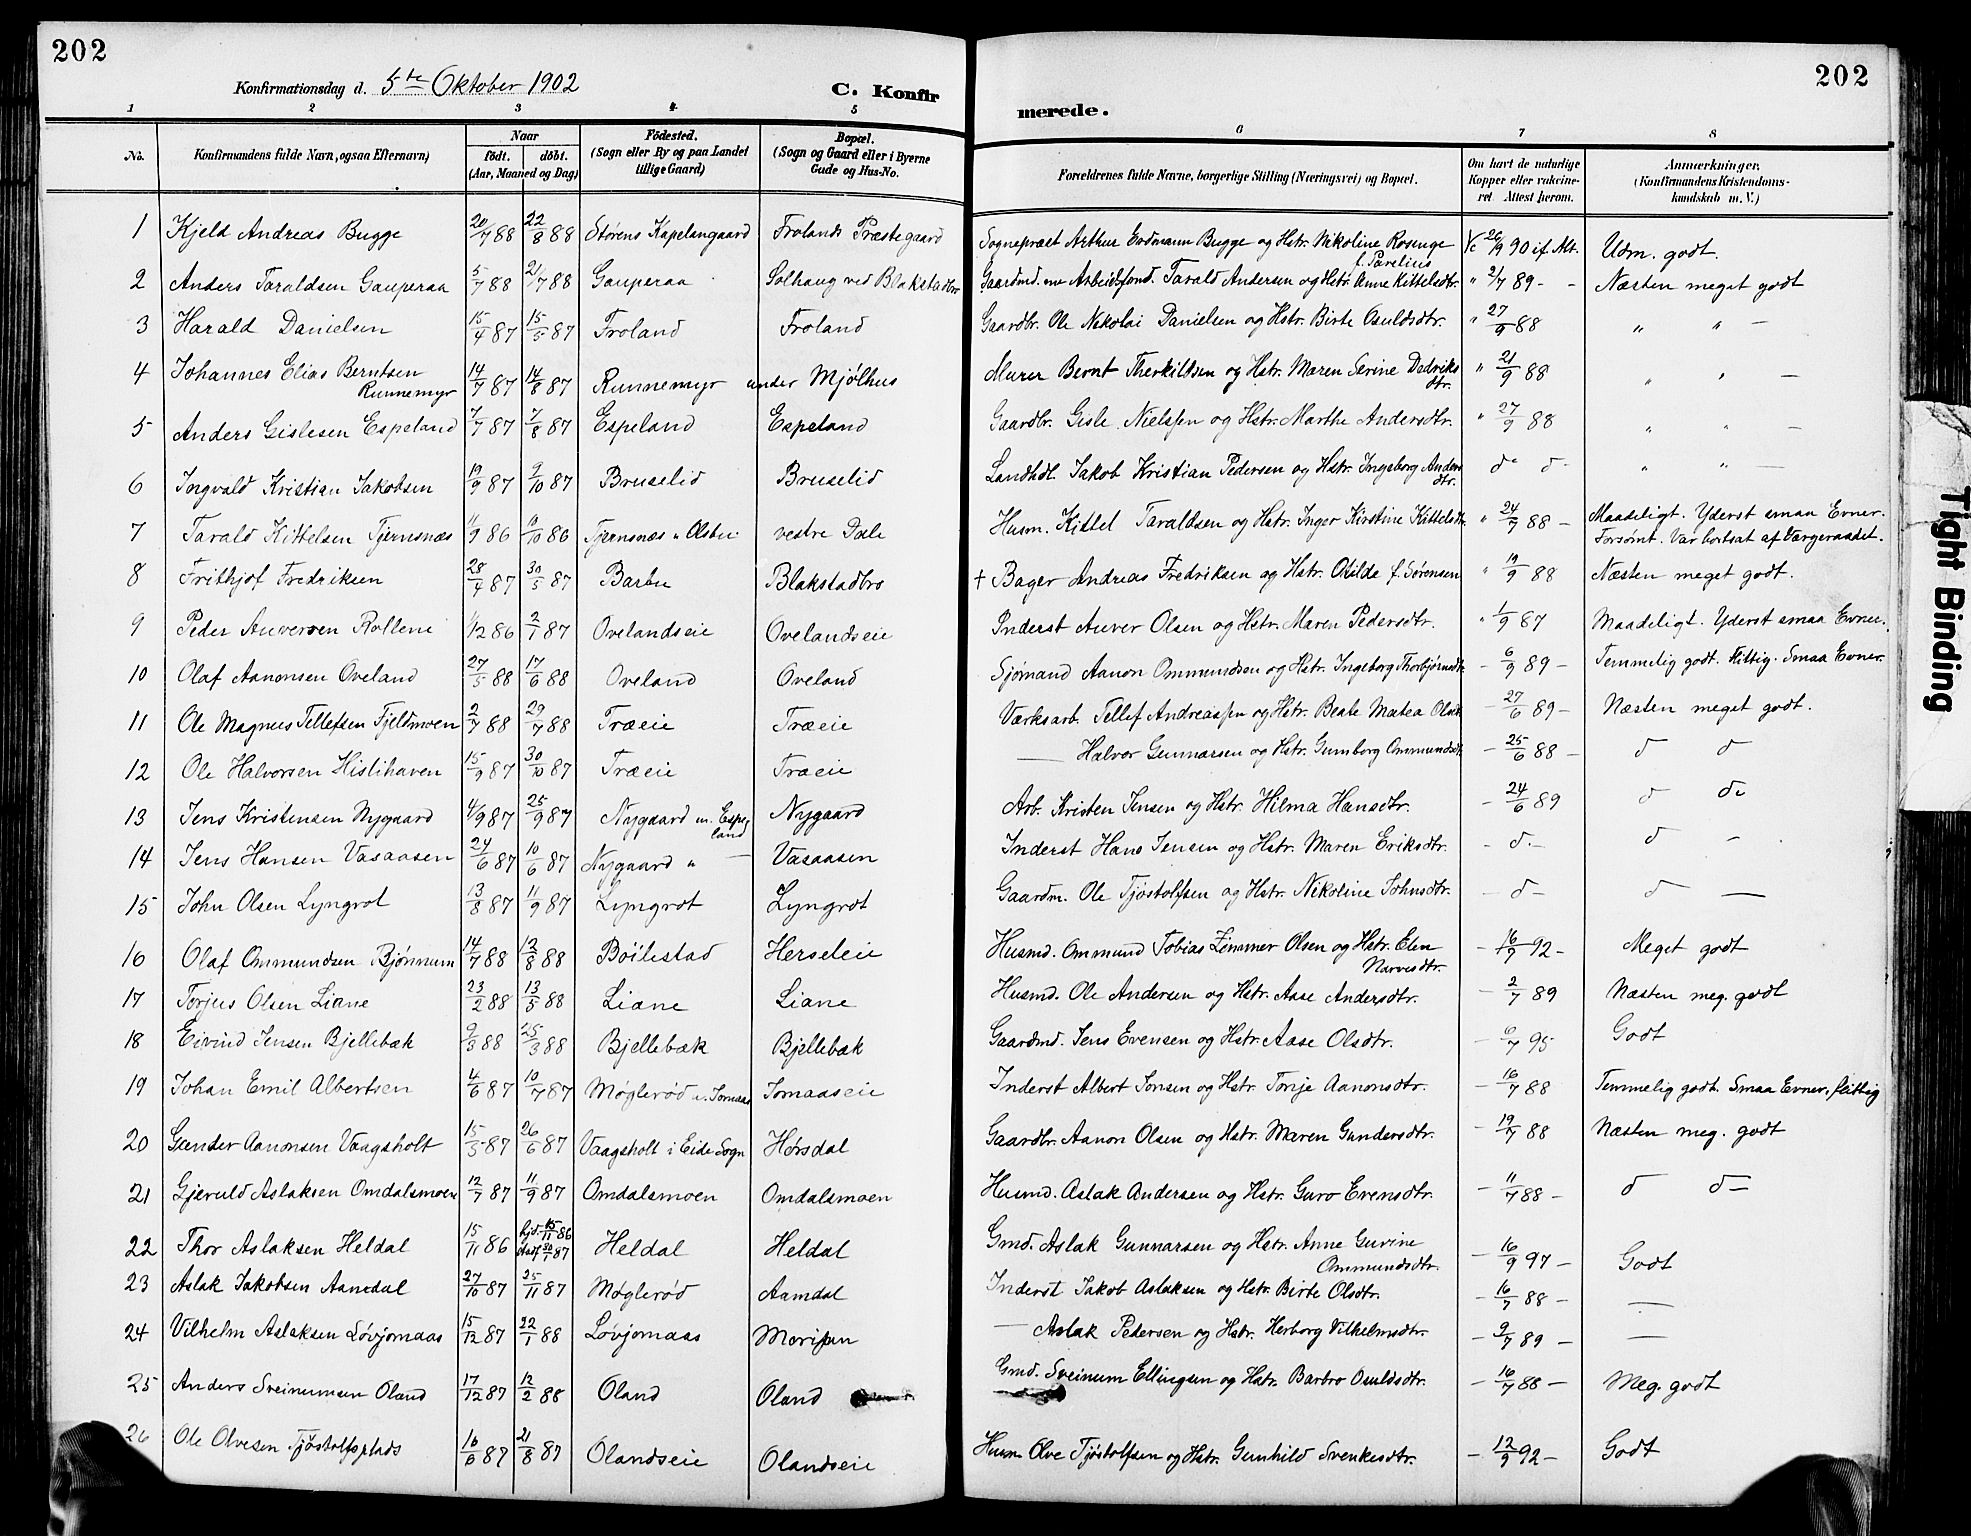 202
Konfirmationsdag d. 5te Oktober 1902
C. Konfir
merede.
202
1 2 3 4 5 6 7 8
No.
Konfirmandens fulde Navn, ogsaa Efternavn)
Naar
födt. döbt.
(Aar, Maaned og Dag)
Födested.
(Sogn eller By og paa Landet
tillige Gaard)
Bopæl.
(Sogn og Gaard eller i Byerne
Gade og Hus-No.
Forældrenes fulde Navne, borgerlige Stilling (Næringsvei) og Bopæl.
Om havt de naturlige
Kopper eller vakcine-
ret Attest herom.
Anmærkninger,
(Konfirmandens Kristendoms-
kundskab m. V.)
1 Kjeld Andreas Bugge 20/7 88 22/8 88 Störens Kapelangaard Frolands Præstegaard Sognepræst Arthur Bugge og Hstr. Nikoline Rosenge
f. Parelius
Vc 26/9 90 if. Att. Udm. godt.
2 Anders Taraldsen Gauperaa 5/7 88 21/7 88 Gauperaa Solhaug ved Blakstadbro Gaardmd. Tarald Andersen og Hstr. Anne Kittelsdtr. " 2/7 89 - - Næsten meget godt
3 Harald Danielsen 15/4 87 15/5 87 Froland Froland Gaardbr. Ole Nikolai Danielsen og Hstr. Birte Osuldsdtr. " 27/9 88 " " —
4 Johannes Elias Berntsen
Runnemyr 14/7 87 14/8 87 Runnemyr under Mjölhus Murer Bernt Therkildsen og Hstr. Maren Serine Dedriks
dtr. " 21/9 88 " " —
5 Anders Gislesen Espeland 7/7 87 7/8 87 Espeland Espeland Gaardbr. Gisle Nielssen og Hstr. Marthe Andersdtr. " 27/9 88 " " —
6 Ingvald Kristian Jakobsen 19/9 87 9/10 87 Bruselid Bruselid Landhdl. Jakob Kristian Pedersen og Hstr. Ingeborg Anders
dtr. do do " " —
7 Tarald Kittelsen Tjernsnæs 11/9 86 10/10 86 Tjernsnæs vestre Dale Husm. Kittel Taraldsen og Hstr. Inger Kirstine Kittelsdtr. " 24/7 88 — Maadeligt. Yderst smaa Evner.
Forsömt. Var bortsat af Værgeraadet.
8 Frithjof Fredriksen 28/4 87 30/5 87 Barbu Blakstadbro † Bager Andreas Fredriksen og Hstr. Otilde f. Sörensen " 19/9 88 Næsten meget godt.
9 Peder Auversen Rollene 1/12 86 2/1 87 Ovelandseie Ovelandseie Inderst Auver Olsen og Hstr. Maren Pedersdtr. " 1/9 87 Maadeligt. Yderst smaa Evner.
10 Olaf Aanonsen Oveland 27/5 88 17/6 88 Oveland Oveland Sjömand Aanon Ommundsen og Hstr. Ingeborg Thorbjörnsdtr. - 6/9 89 - Temmelig godt. Flittig. Smaa Evner.
11 Ole Magnus Tellefsen Fjeldmoen 2/7 88 29/7 88 Træeie Træeie Værksarb. Tellef Andreassen og Hstr. Beate Matea Olsdtr. - 27/6 89 - Næsten meget godt.
12 Ole Halvorsen Hislihaven 15/9 87 30/10 87 Træeie Træeie — Halvor Gunnarsen og Hstr. Gumborg Ommundsdtr. - 25/6 88 - do do
13 Jens Kristensen Nygaard 4/9 87 25/9 87 Nygaard u. Espe-
land Nygaard Arb. Kristen Jensen og Hstr. Hilma Hansdtr. - 24/6 89 do do
14 Jens Hansen Vasaasen 24/6 87 10/6 87 Nygaard " — Vasaasen Inderst Hans Jensen og Hstr. Maren Eriksdtr. - do - do -
15 John Olsen Lyngrot 13/8 87 11/9 87 Lyngrot Lyngrot Gaardm. Ole Tjöstolfsen og Hstr. Nikoline Johnsdtr. - do - do —
16 Olaf Ommundsen Björnmum 14/7 88 12/8 88 Böilestad Herseleie Husmd. Ommund Tobias Zimmer Olsen og Hstr. Elen
Narvesdtr. - 16/7 92 - Meget godt
17 Torjus Olsen Liane 23/2 88 13/5 88 Liane Liane Husmd. Ole Andersen og Hstr. Aase Andersdtr. - 2/7 89 Næsten meg. godt
18 Eivind Jensen Bjellebæk 9/3 88 25/3 88 Bjellebæk Bjellebæk Gaardmd. Jens Evensen og Hstr. Aase Olsdtr. - 6/7 95 Godt
19 Johan Emil Albertsen 4/6 87 10/7 87 Mögleröd u. Jomaas Jomaaseie Inderst Albert Jonsen og Hstr. Torije Aanonsdtr. - 16/7 88 Temmelig godt. Smaa Evner, flittig
20 Gunder Aanonsen Vaagsholt 15/5 87 26/6 87 Vaagsholt i Eide Sogn Hörsdal Gaardbr. Aanon Olsen og Hstr. Maren Gundersdtr. - 19/7 88 Næsten meg. godt
21 Gjeruld Aslaksen Omdalsmoen 12/7 87 11/9 87 Omdalsmoen Omdalsmoen Husmd. Aslak Andersen og Hstr. Guro Evensdtr. - 11/7 88 - do do
22 Thor Aslaksen Heldal 15/11 86 hjd. 15/11 86
Heldal Heldal Gmd. Aslak Gunnarsen og Hstr. Anne Guvine
Ommundsdtr. - 16/9 97 - Godt
23 Aslak Jakobsen Aamdal 27/10 87 25/11 87 Mögleröd Aamdal Inderst Jakob Aslaksen og Hstr. Birte Olsdtr. - 16/7 88 - —
24 Vilhelm Aslaksen Lövjomaas 15/12 87 22/1 88 Lövjomaas Morisen — Aslak Pedersen og Hstr. Herborg Vilhelmsdtr. - 9/7 89 - —
25 Anders Sveinumsen Oland 17/12 87 12/2 88 Oland Oland Gmd. Sveinum Ellingsen og Hstr. Barbro Osuldsdtr. - 16/7 88 - Meg. godt
26 Ole Olvesen Tjöstolfsplads 16/6 87 21/8 87 Olandseie Olandseie Husm Olve Tjöstolfsen og Hstr. Gunhild Svenkesdtr. - 12/9 92 - Godt
Tight Binding